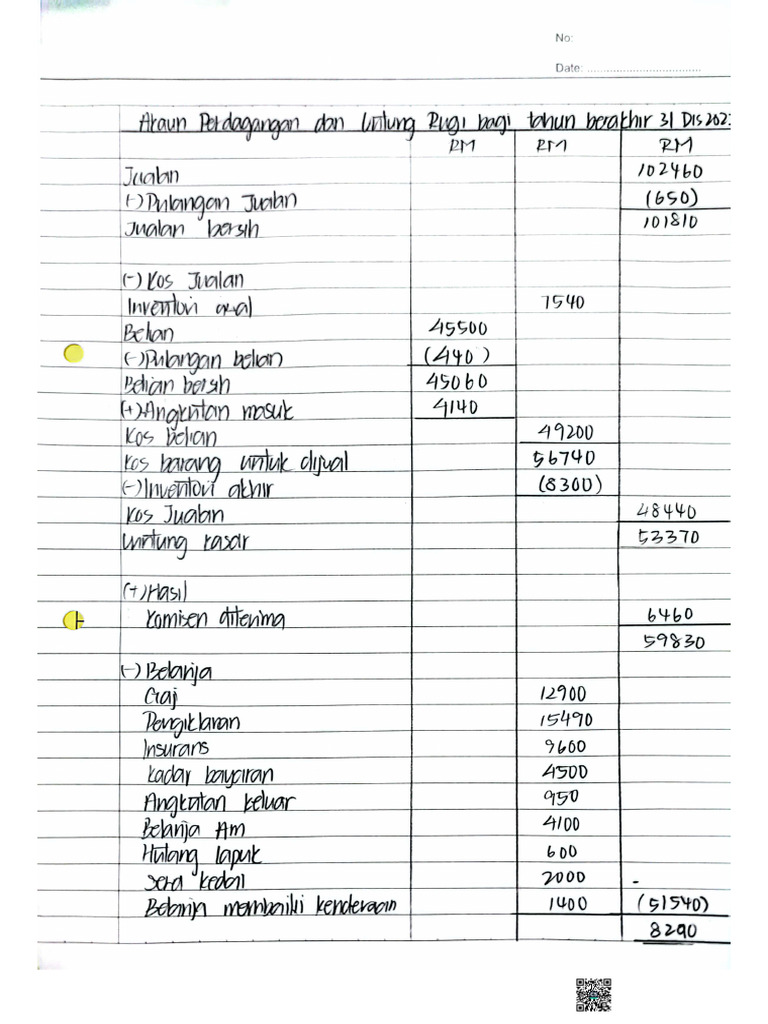 No:
Date: ..................................
Akaun Perdagangan dan Untung Rugi bagi tahun berakhir 31 Dis 202
RM RM RM
Jualan 102460
(-) Pulangan Jualan (650)
Jualan bersih 101810
(-) Kos Jualan
Inventori awal 7540
Belian 45500
(-) Pulangan belian (440)
Belian bersih 45060
(+) Angkutan masuk 4140
Kos belian 49200
Kos barang untuk dijual 56740
(-) Inventori akhir (8300)
Kos Jualan 48440
Untung kasar 53370
(+) Hasil
Komisen diterima 6460
59830
(-) Belanja
Gaji 12900
Pengiklanan 15490
Insurans 9600
Kadar bayaran 4500
Angkutan keluar 950
Belanja Am 4100
Hutang lapuk 600
Sewa kedai 2000 -
Belanja membaiki kenderaan 1400 (51540)
8290